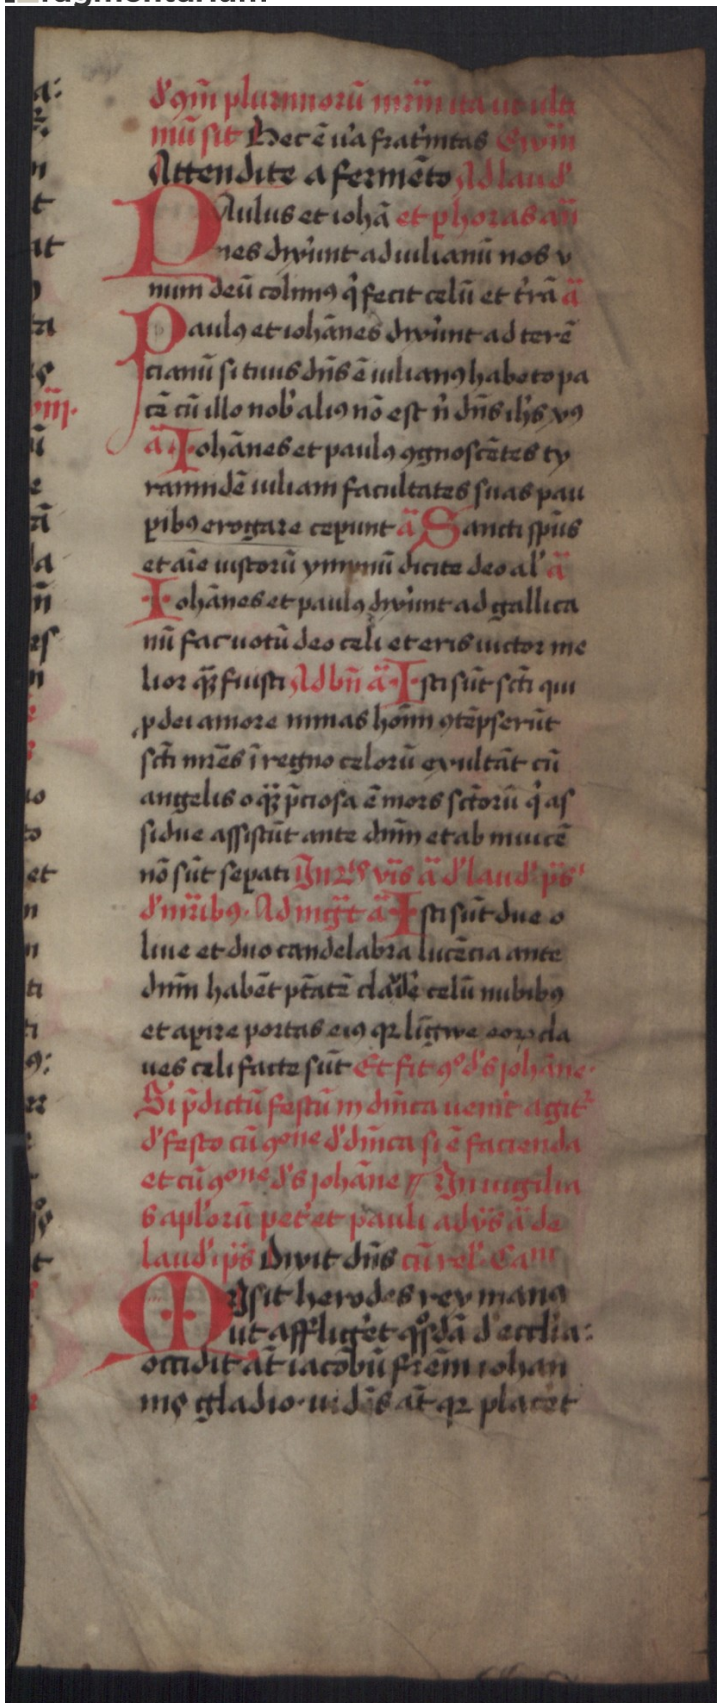 d' 9m̄ plurimorū mr̄m ita ut ulti
mū sit Hec ē u'a frat'nitas Ewm̄
Attendite a fermēto Ad laud'
PAulus et iohā et p horas an̄
nes dixer̄t ad iulianū nos v
num deū colim9 q̇ fecit celū et t'rā ā
Paul9 et iohānes dixer̄t ad terē
cianū si tuus dn̄s ē iulian9 habeto pa
cē cū illo nob' ali9 nō est n̄ dn̄s ih̄s xp̄9
ā Iohānes et paul9 9gnoscētes ty
rannidē iuliani facultates suas pau
pib9 erogare ceperunt ā Sancti sp̄us
et aīe iustorū ympnū dicite deo al' ā
Iohānes et paul9 dixer̄t ad gallica
nū fac uotū deo celi et eris uictor me
lior qͣ fuisti Ad bn̄ ā Isti sūt sc̄i qui
p dei amore minas hoīm 9tēpserūt
sc̄i mr̄es ī regno celorū exultāt cū
angelis o qͣ p̄ciosa ē mors sc̄torū q̇ as
sidue assistūt ante dn̄m et ab inuicē
nō sūt sepati
d' mr̄ib9. Ad mgt̄ ā Isti sūt due o
liue et duo candelabra lucēcia ante
dn̄m habēt p̄tatē claud'e celū nubib9
et apire portas ei9 qꝛ līgwe eoꝝ cla
ues celi facte sūt Et fit 9o d' s johāne.
Si p̄dictū festū in dn̄ica uen'it agit'
d' festo cū 9one d' dn̄ica si ē facienda
et cū 9one d' s johāne In uigilia
s apl'orū pet' et pauli ad vs̄ ā de
laud' ip̄s Dixit dn̄s cū rel' Cam
MIsit herodes rex manꝰ
ut affliger̄et qͦsdā d' eccl'ia:
occidit aūt iacobū frēm iohan
nis gladio. uidēs aūt qꝛ placet